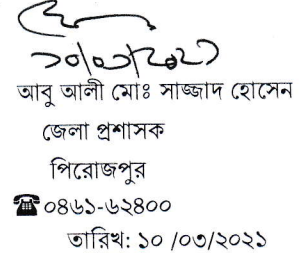 ১০/০৩/২০২১
আবু আলী মোঃ সাজ্জাদ হোসেন
জেলা প্রশাসক
পিরোজপুর
☎০৪৬১-৬২৪০০
তারিখ: ১০ /০৩/২০২১